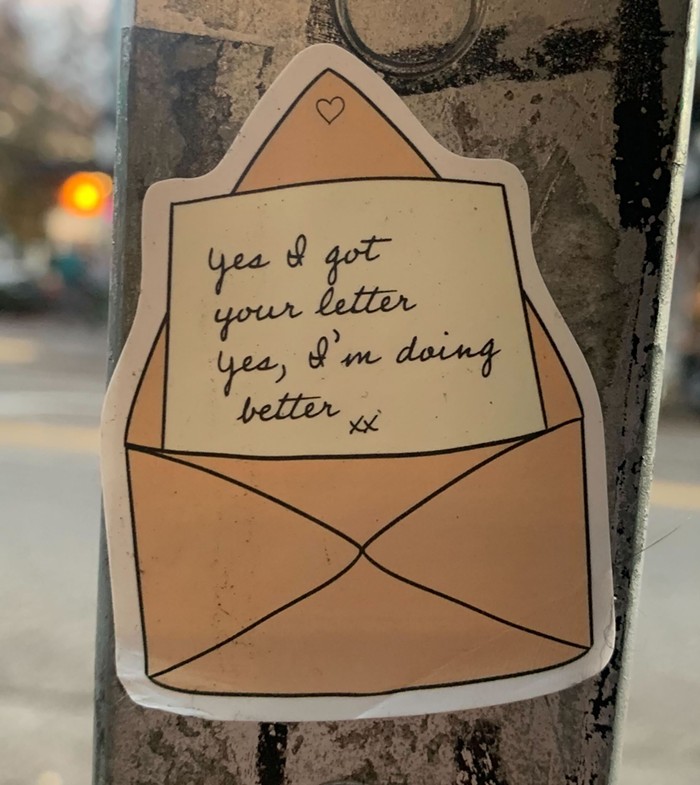 yes I got
your letter
yes, I'm doing
better xx